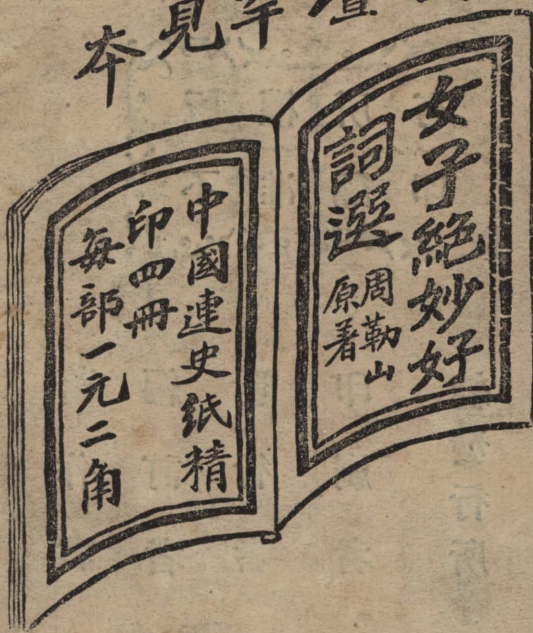 罕見
本
女子絕妙好
詞選
周勒山
原著
中國連史紙精
印四冊
每部一元二角